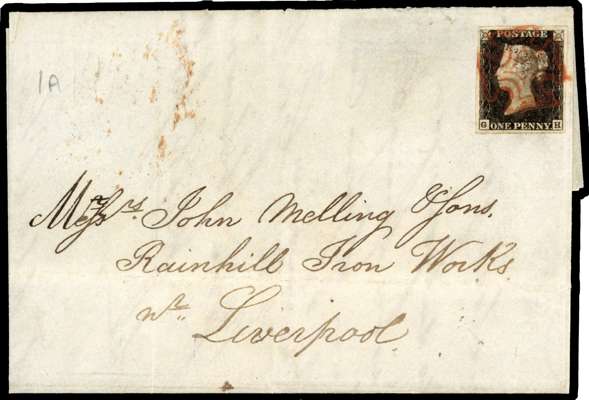 1A
POSTAGE
G ONE PENNY H
Messrs. John Melling & Sons.
Rainhill Iron Works
nr. Liverpool.